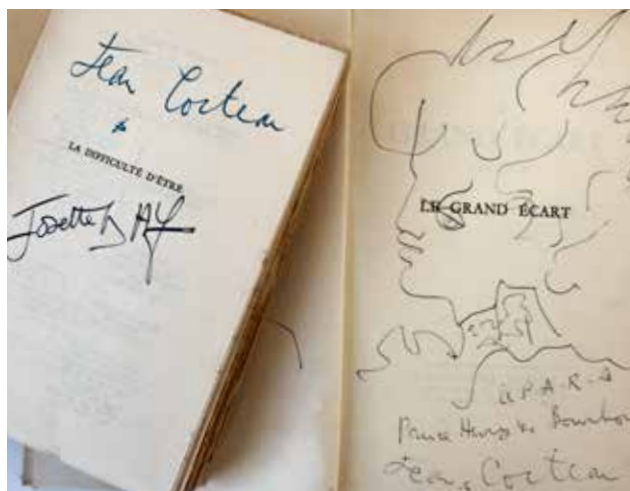 Jean Cocteau
LA DIFFICULTÉ D'ÊTRE
Josette DAY
LE GRAND ÉCART
à P.A.R-A
Prince Henry de Bourbon
Jean Cocteau